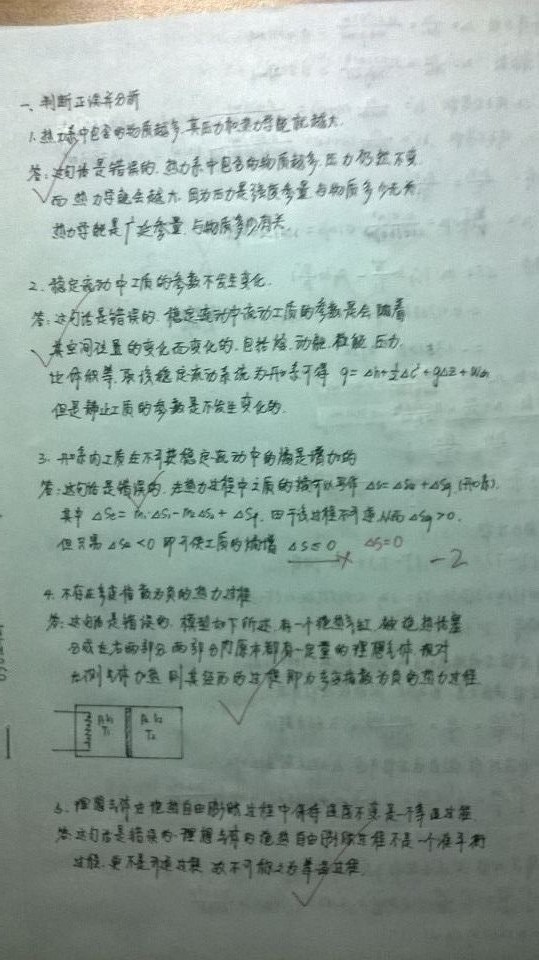 一、判断正误并分析
1. 热力系中包含的物质越多,其压力和热力学能就越大.
答:这句话是错误的. 热力系中包含的物质越多,压力仍然不变.
而热力学能会越大. 因为压力是强度参量,与物质多少无关.
热力学能是广延参量,与物质多少有关.
2. 稳定流动中工质的参数不发生变化.
答:这句话是错误的. 稳定流动中流动工质的参数是会随着
其空间位置的变化而变化的,包括焓,动能,位能,压力,
比体积等,取该稳定流动系统为开口系可得 q = Δh+½Δc²+gΔz+wsh
但是静止工质的参数是不发生变化的.
3. 开口系内工质在不可逆稳定流动中的熵是增加的
答:这句话是错误的. 在热力过程中工质的熵可以写作 ΔS=ΔSe+ΔSg (开口系).
其中 ΔSe = m₁ΔS₁-m₂ΔS₂ + ΔSf. 由于该过程不可逆从而ΔSg>0.
但只需 ΔSe<0 即可使工质的熵增 ΔS≤0 × ΔS=0 -2
4. 不存在多变指数为负的热力过程
答:这句话是错误的. 模型如下所述,有一个绝热气缸,被绝热活塞
分成左右两部分,两部分内原本都有一定量的理想气体,现对
左侧气体加热,则其经历的过程即为多变指数为负的热力过程
P₁V₁ P₂V₂
T₁ T₂
5. 理想气体在绝热自由膨胀过程中保持温度不变,是一个等温过程.
答:这句话是错误的. 理想气体的绝热自由膨胀过程不是一个准平衡
过程,更不是可逆过程,故不可称之为等温过程.